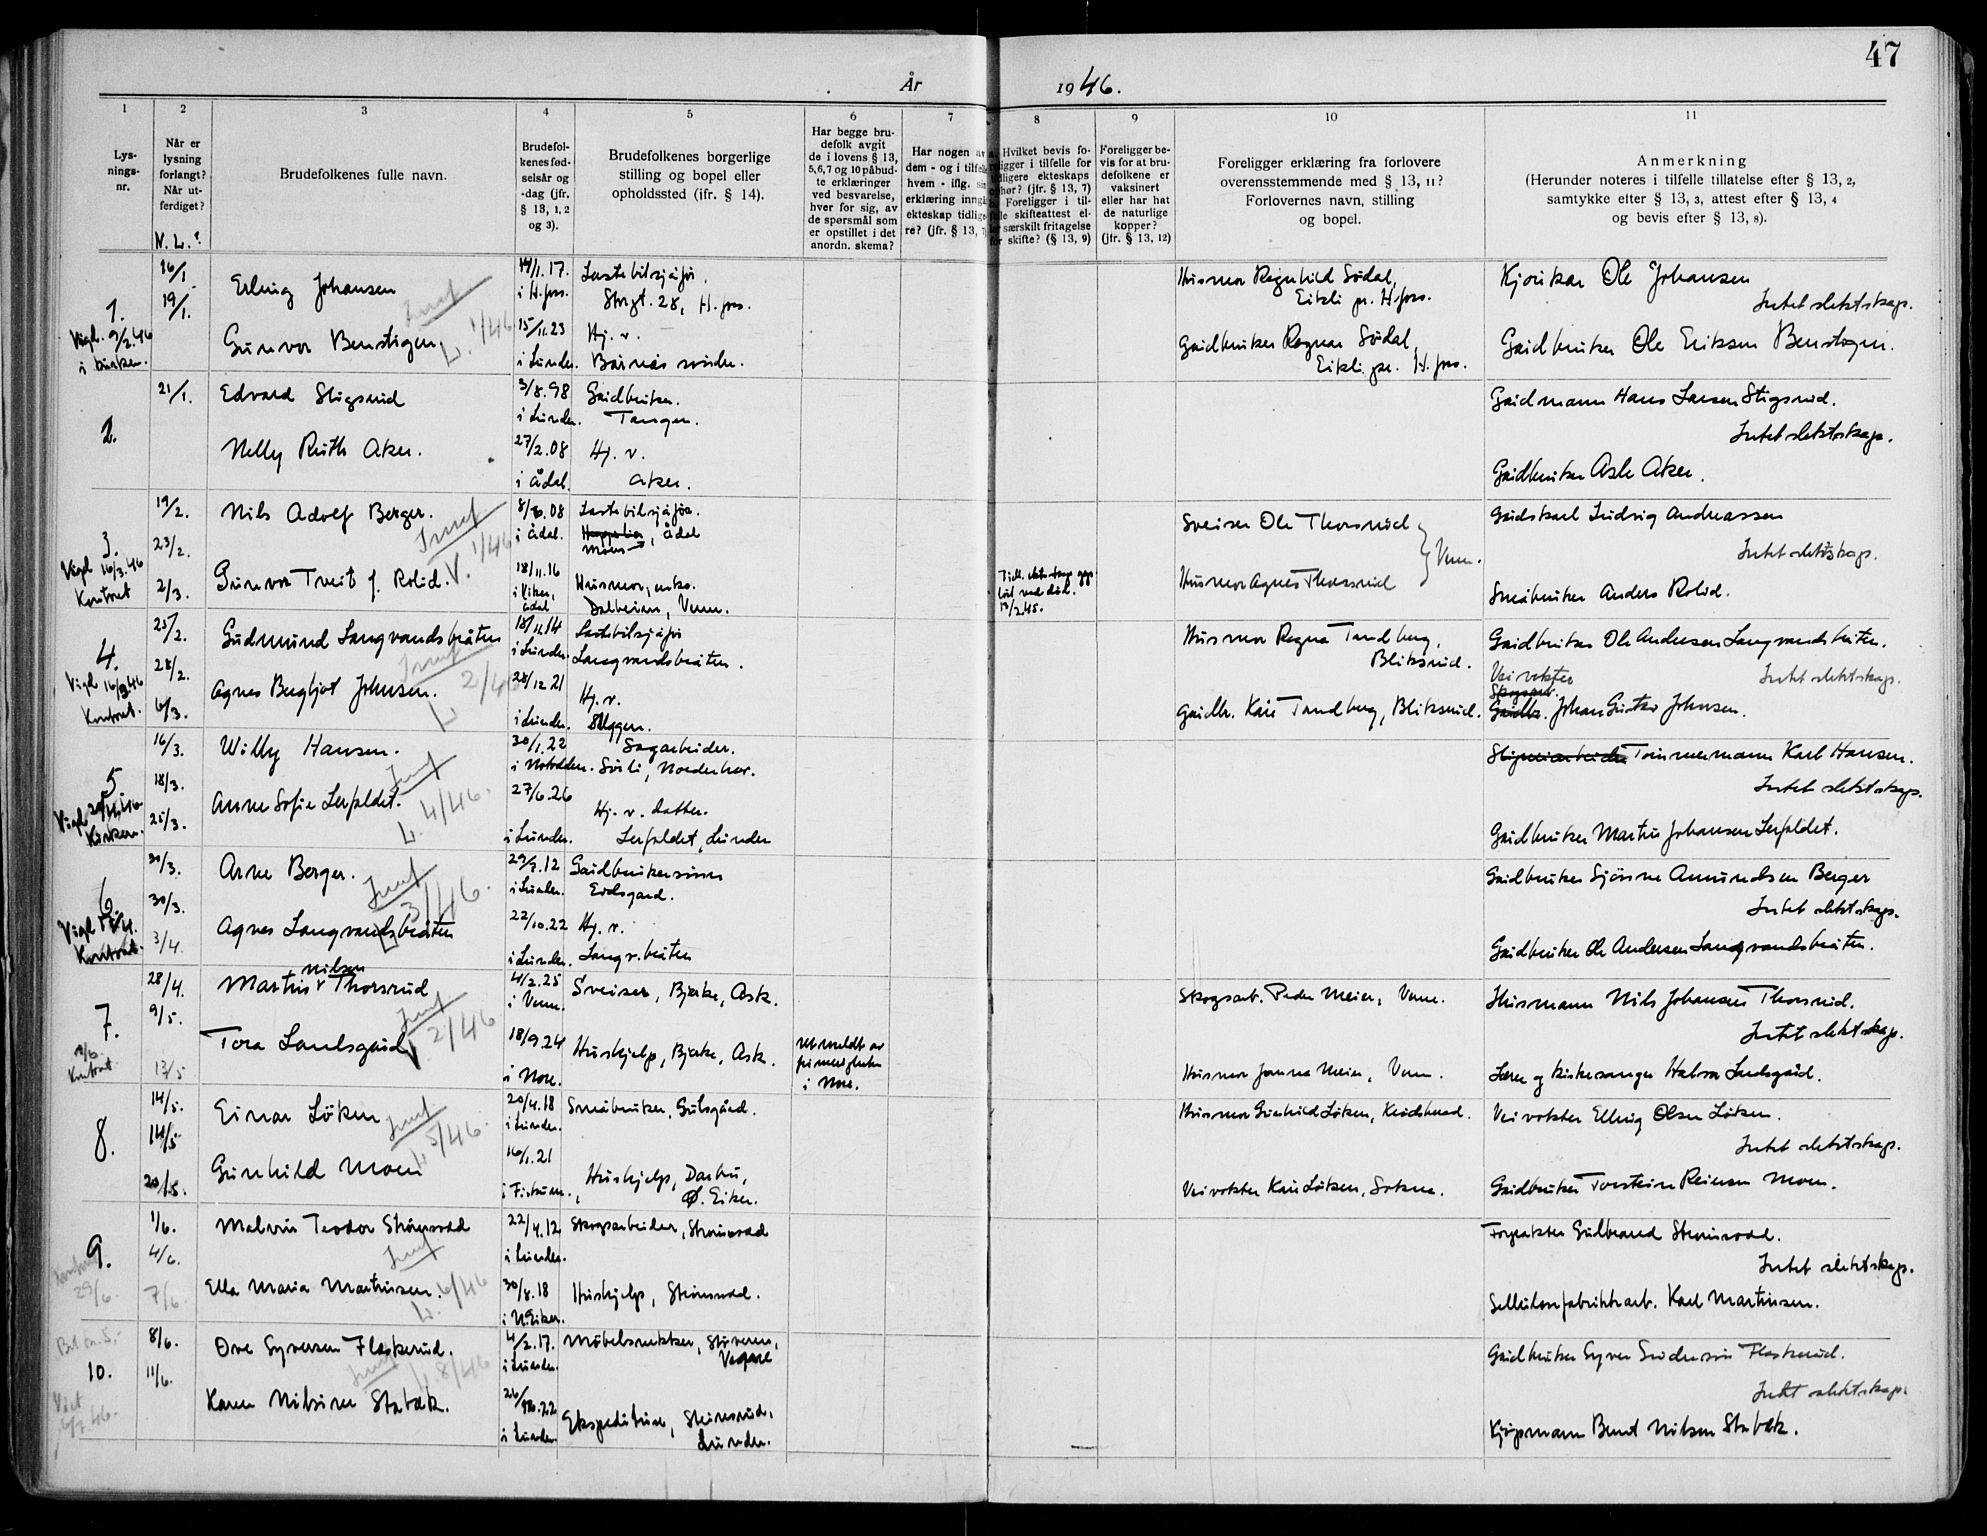 47
År 1946.
1 2 3 4 5 6 7 8 9 10 11
Lys-
nings-
nr.
Når er
lysning
forlangt?
Når ut-
ferdiget?
N. L.?
Brudefolkenes fulle navn.
Brudefol-
kenes fød-
selsår og
-dag (jfr.
§ 13, 1, 2
og 3).
Brudefolkenes borgerlige
stilling og bopel eller
opholdssted (jfr. § 14).
Har begge bru-
defolk avgit
de i lovens § 13,
5,6,7 og 10 påbud-
te erklæringer
ved besvarelse,
hver for sig, av
de spørsmål som
er opstillet i det
anordn. skema?
Har nogen av
dem - og i tilfelle
hvem - iflg.
erklæring inngå
ekteskap tidlige-
re? (jfr. § 13, 7
Hvilket bevis fo-
religger i tilfelle for
tidligere ekteskaps
ophør? (jfr. § 13, 7)
Foreligger i til-
felle skifteattest el-
ler særskilt fritagelse
for skifte? (§ 13, 9)
Foreligger be-
vis for at bru-
defolkene er
vaksinert
eller har hat
de naturlige
kopper?
(jfr. § 13, 12)
Foreligger erklæring fra forlovere
overensstemmende med § 13, 11?
Forlovernes navn, stilling
og bopel.
Anmerkning
(Herunder noteres i tilfelle tillatelse efter § 13, 2,
samtykke efter § 13, 3, attest efter § 13, 4
og bevis efter § 13, 8).
1.
Vigl. 9/2.46
i kirken.
16/1.
19/1.
Erling Johansen
14/1.17.
i H.foss.
Lastebilsjåfør.
Storgt. 28, H.foss.
Husmor Ragnhild Sødal,
Eikli pr. H.foss.
Kjørekar Ole Johansen
Intet slektskap.
L. 1/46
Gunvor Benstigen.
15/11.23
i Lunder.
Hj. v.
Gårdbruker Ragnar Sødal,
Eikli pr. H.foss.
Gårdbruker Ole Eriksen Benstigen.
2.
21/1.
Edvard Stigsrud
3/8.98
i Lunder.
Gårdbruker.
Tangen.
Gårdmann Hans Larsen Stigsrud.
Intet slektskap.
Nelly Ruth Aker.
27/2.08
i Ådal.
Hj. v.
Aker.
Gårdbruker Asle Aker.
3.
Vigl 16/3.46
Kontoret
19/2.
23/2.
2/3.
Nils Adolf Berger.
8/8.08
i Ådal.
Lastebilsjåfør.
Moen, Ådal
Sveiser Ole Thorsrud
Husmor Agnes Thorsrud
Veme.
Gårdskarl Ludvig Andreassen
Intet slektskap.
V. 1/46
Gunvor Tveit f. Rolid.
18/11.16
i Viker,
Ådal
Husmor, enke.
Veme.
Tidl. ekteskap opp-
løst ved død.
13/2.45.
Småbruker Anders Rolid.
4.
Vigl 16/3.46
Kontoret.
25/2.
28/2.
6/3.
Gudmund Langvandsbråten
18/11.14
i Lunder.
Lastebilsjåfør
Langvandsbråten.
Husmor Ragna Tandberg,
Bliksrud.
Gårdbruker Ole Andersen Langvandsbråten.
Intet slektskap.
L. 2/46
Agnes Bergljot Johnsen.
28/12 21
i Lunder.
Hj. v.
Gårdbr. Kåre Tandberg, Bliksrud.
Vei vokter
Skogsarb.
Gårdbr. Johan Gustav Johnsen.
5
Kirken.
16/3.
18/3.
25/3.
Willy Hansen.
30/1.22
i Notodden.
Sagarbeider.
Sørli, Norderhov.
Tømmermann Karl Hansen.
Intet slektskap.
L. 4/46.
Anne Sofie Lerfaldet.
27/6.26
i Lunder.
Hj. v. datter.
Lerfaldet, Lunder
Gårdbruker Martin Johansen Lerfaldet.
6
Kontoret.
20/3.
30/3.
3/4.
Arne Berger.
29/3.12
i Lunder.
Gårdbrukersønn
Eidsgard.
Gårdbruker Sjønne Amundsen Berger
Intet slektskap.
L. 3/46.
Agnes Langvandsbråten
22/10.22
i Lunder.
Hj. v.
Langv.bråten
Gårdbruker Ole Andersen Langvandsbråten.
7.
Kontoret.
28/4.
9/5.
13/5
Martin Nilsen Thorsrud
4/2.25
i Veme.
Sveiser, Bjerke, Ask.
Skogsarb. Peder Meier, Veme.
Husmann Nils Johansen Thorsrud.
Intet slektskap.
V. 2/46
Tora Landsgård
18/9.24
i Nore.
Hushjelp, Bjerke, Ask.
i Nore.
Husmor Joanna Meier, Veme.
Lærer og kirkesanger Halvor Landsgård.
8.
14/5.
14/5
20/5.
Einar Løken
20/4.18
i Lunder.
Småbruker, Gulsgård.
Husmor Gunhild Løken, Krødsherad.
Vei vokter Elling Olsen Løken.
Intet slektskap.
L. 5/46.
Gunhild Moen
16/1.21
i Fiskum.
Hushjelp, Darbu,
Ø. Eiker.
Vei vokter Kåre Løken, Sokna.
Gårdbruker Torstein Reiersen Moen.
9.
29/6.
1/6.
4/6.
7/6.
Malvin Teodor Strømsodd
22/4.12
i Lunder.
Skogsarbeider, Strømsodd
Forpakter Gulbrand Strømsodd.
Intet slektskap.
L. 6/46
Ella Maria Martinsen.
30/8.18
i N.Eiker.
Hushjelp, Strømsodd.
Sellulosefabrikkarb. Karl Martinsen.
10.
8/6.
11/6.
Ove Syversen Flaskerud.
4/2.17.
i Lunder.
Møbelsnekker,
Gårdbruker Syver Flaskerud.
Intet slektskap.
L. 8/46
Karen Nilsine Stabæk.
26/10.22
i Lunder
Ekspeditrise,
Lunder.
Kjøpmann Bernt Nilsen Stabæk.